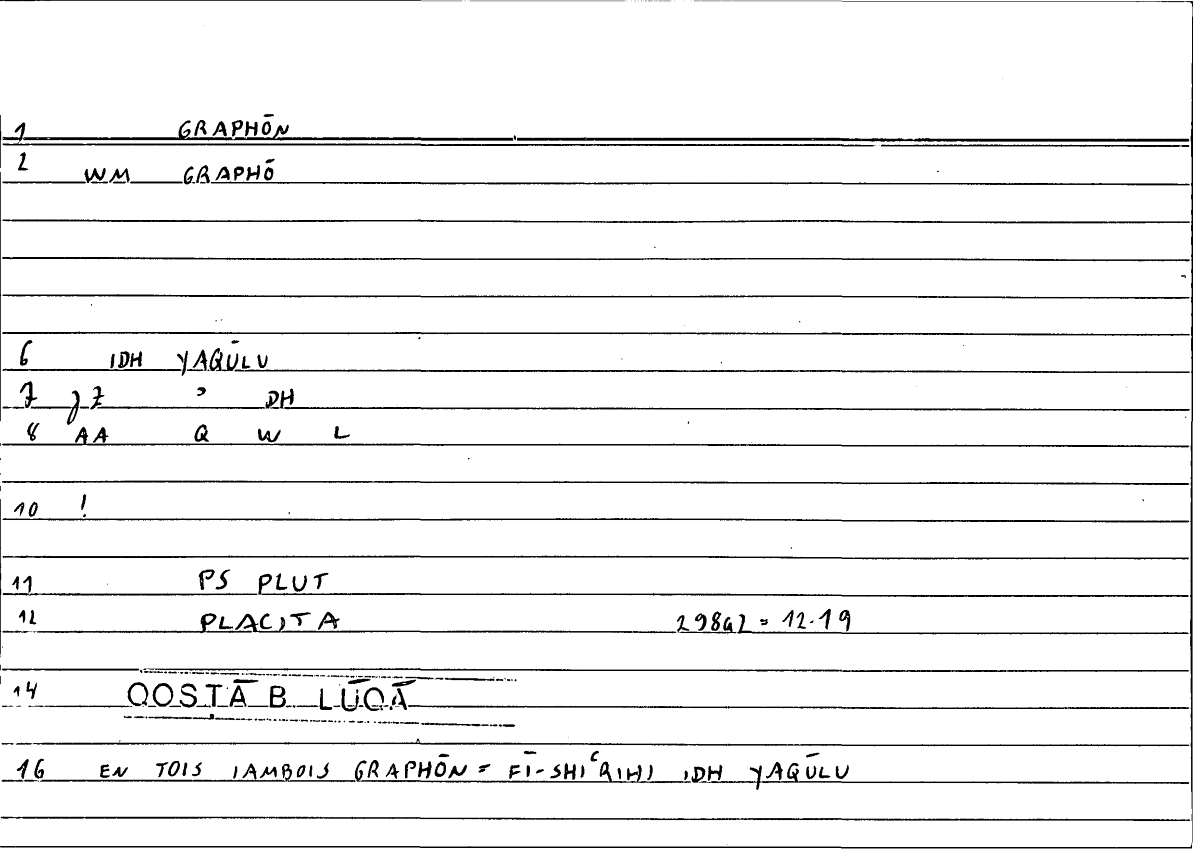 1 GRAPHŌN
2 WM GRAPHŌ
6 IDH YAQŪLU
7 ʾ DH
8 AA Q W L
10 !
11 PS PLUT
12 PLACITA 298a2 = 12.19
14 QOSṬĀ B LŪQĀ
16 EN TOIS IAMBOIS GRAPHŌN = FĪ-SHIʿRIHI IDH YAQŪLU